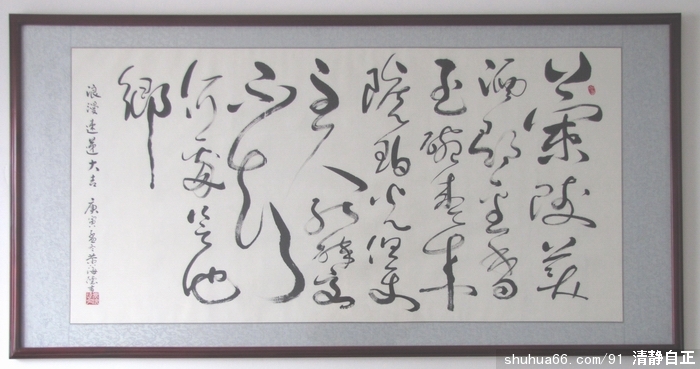 蘭陵美
酒郁金香
玉碗盛来
琥珀光但使
主人能醉客
不知
何處是他
鄉
浪漫 大吉 庚寅
shuhua66.com/91 清静自正